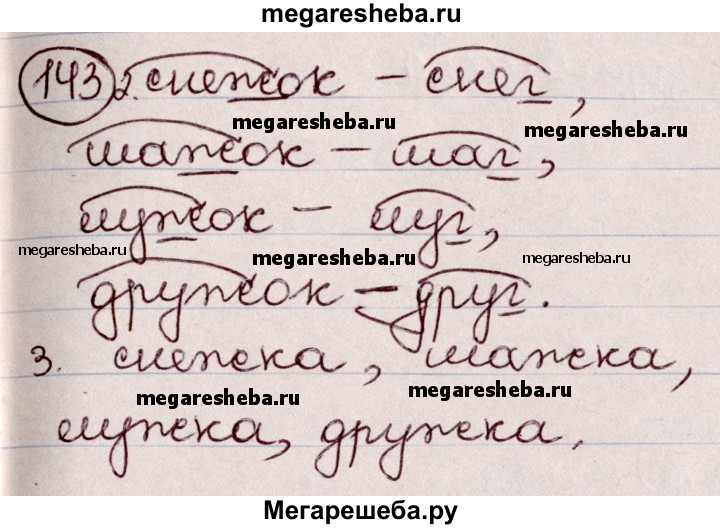 megaresheba.ru
143 2. снежок – снег,
megaresheba.ru megaresheba.ru
шажок – шаг,
лужок – луг,
megaresheba.ru megaresheba.ru megaresheba.ru
дружок – друг.
3. снежка, шажка,
megaresheba.ru megaresheba.ru
лужка, дружка.
Мегарешеба.ру